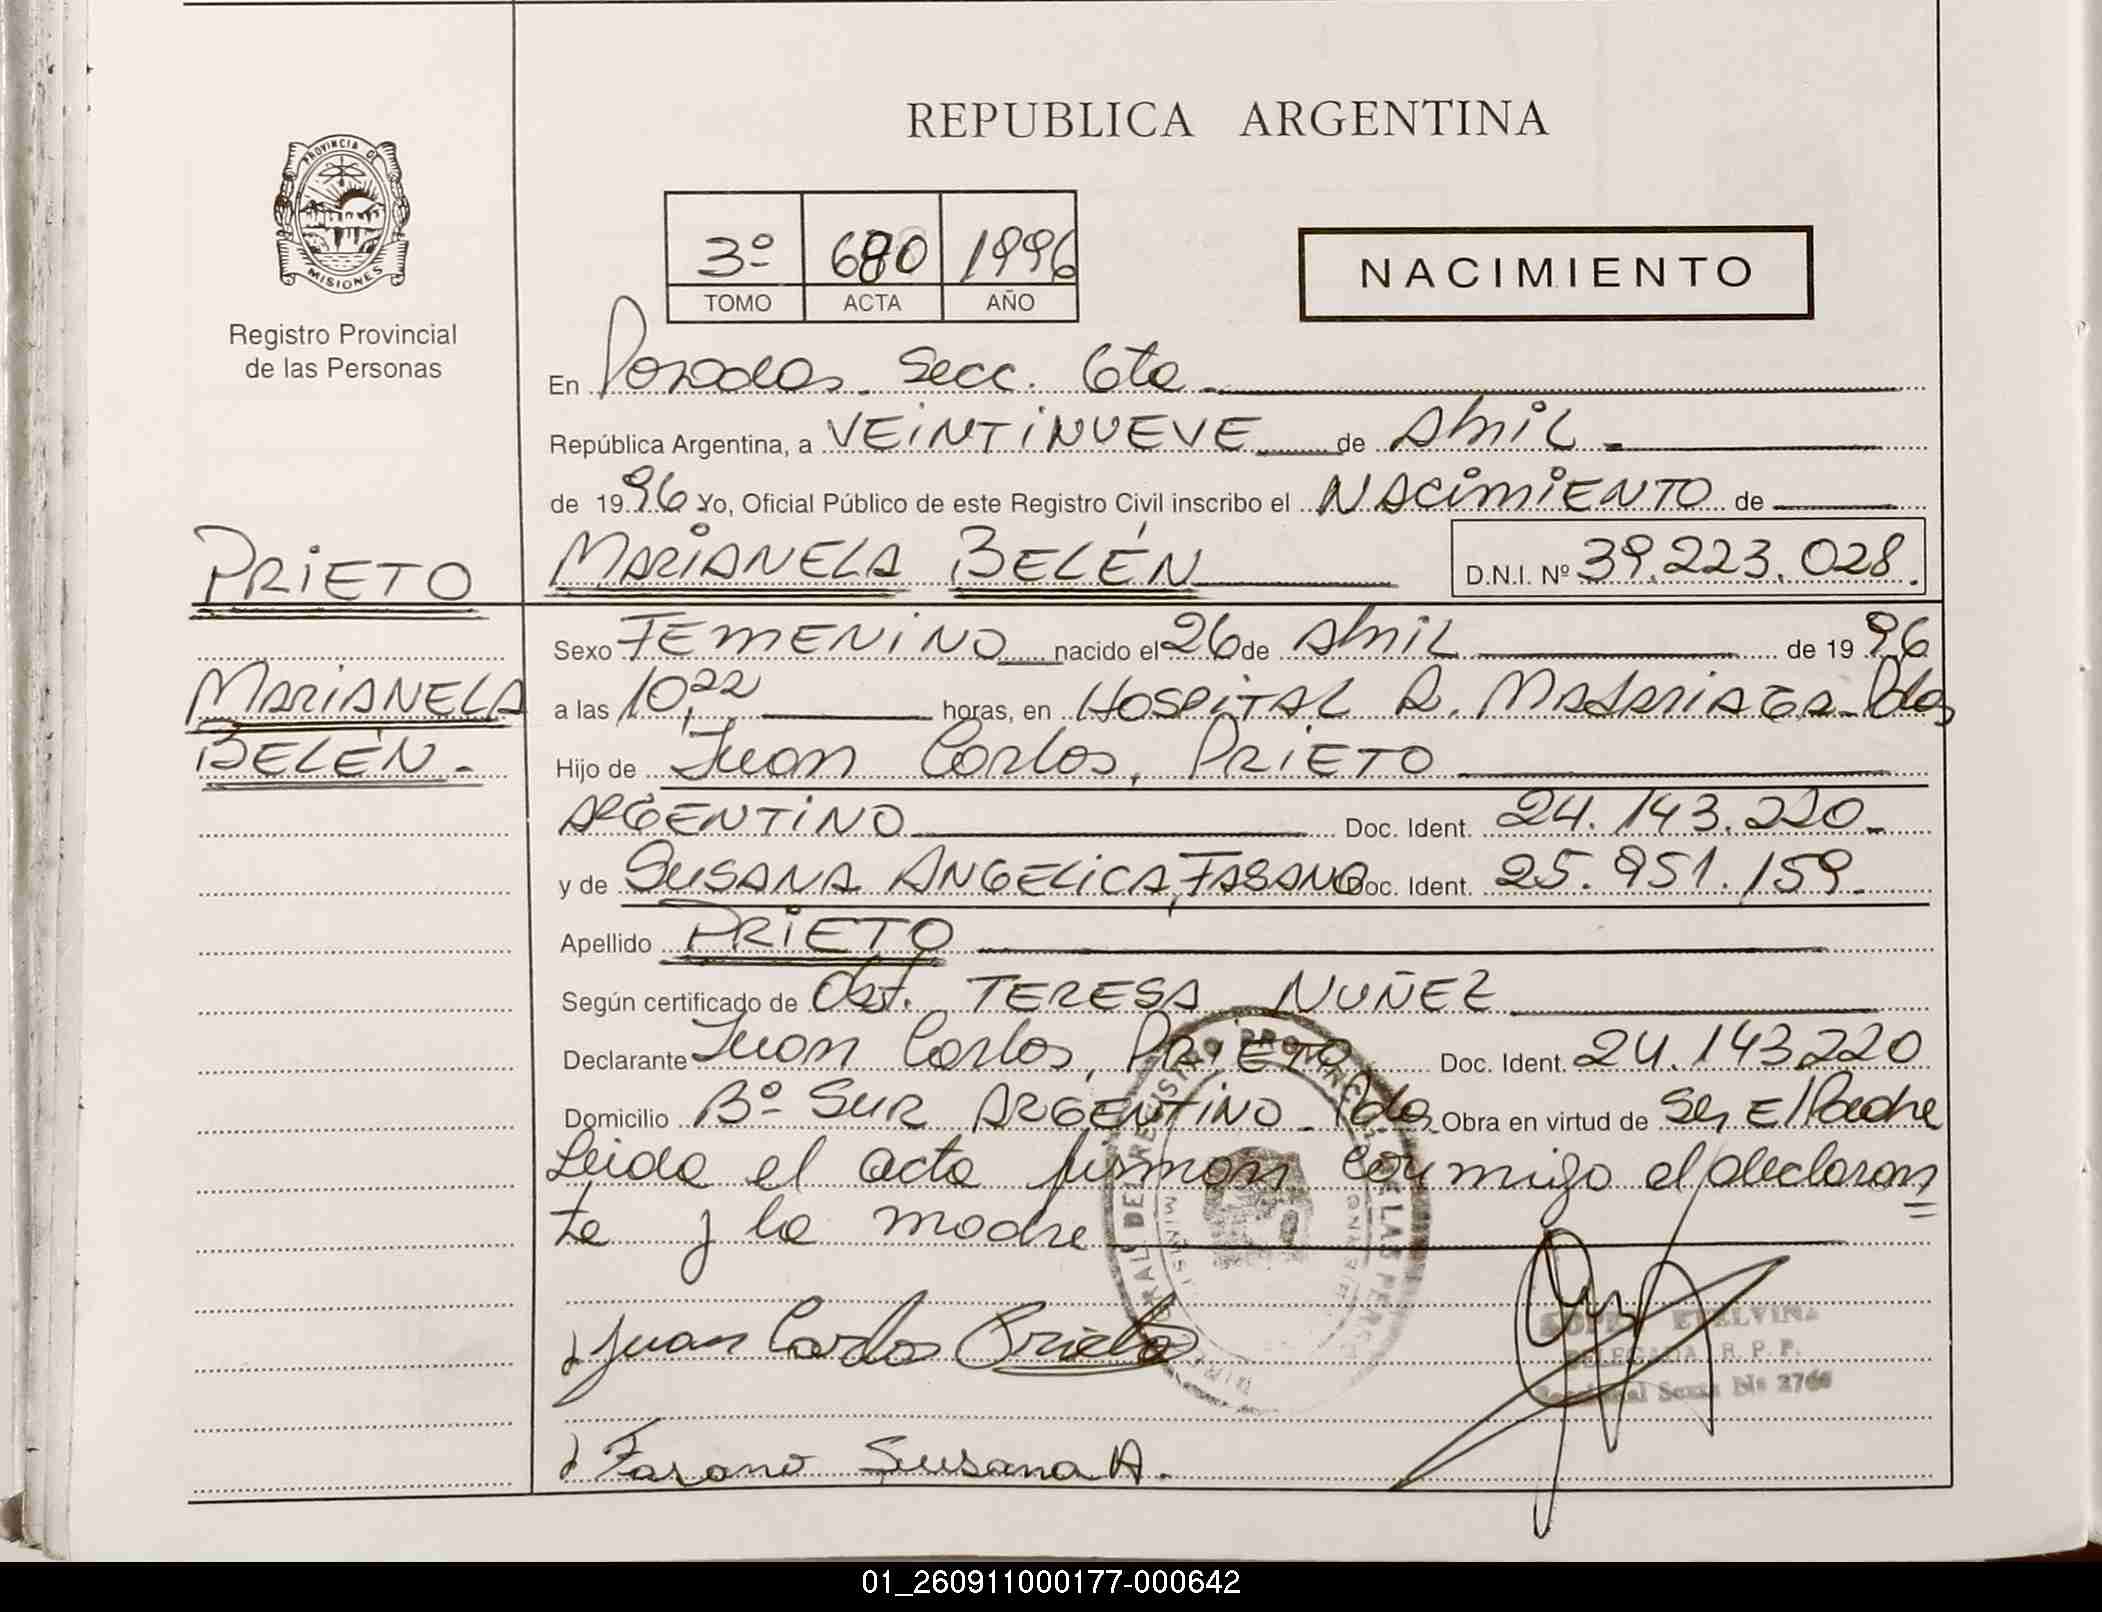 REPUBLICA ARGENTINA
PROVINCIA DE
MISIONES
Registro Provincial
de las Personas
3º 680 1996
TOMO ACTA AÑO
NACIMIENTO
En Posadas. Secc. 6ta.
República Argentina, a VEINTINUEVE de Abril
de 1996 Yo, Oficial Público de este Registro Civil inscribo el NACIMIENTO de
PRIETO
MARIANELA
BELÉN.
MARIANELA BELÉN D.N.I. Nº 39.223.028.
Sexo FEMENINO nacido el 26 de Abril de 1996
a las 10,22 horas, en HOSPITAL R. MADARIAGA - Pdas
Hijo de Juan Carlos, PRIETO
ARGENTINO Doc. Ident. 24.143.220.
y de SUSANA ANGELICA, FASANO Doc. Ident. 25.951.159.
Apellido PRIETO
Según certificado de Obst. TERESA NUÑEZ
Declarante Juan Carlos, PRIETO Doc. Ident. 24.143220
Domicilio Bº SUR ARGENTINO - Pdas. Obra en virtud de Ser El Padre
Leida el acta firman conmigo el declaran
te y la madre
Juan Carlos Prieto
ETELVINA
DELEGADA R. P. P.
Seccional Sexta
Fasano Susana A.
01_260911000177-000642